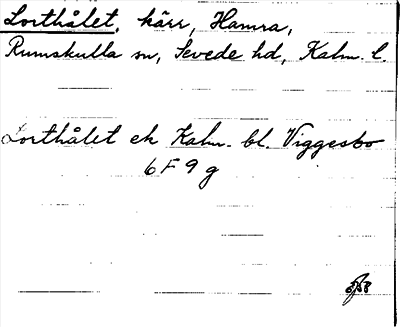 Lorthålet, kärr, Hamra,
Rumskulla sn, Sevede hd, Kalm. l.
Lorthålet ek Kalm. bl. Viggesbo
6 F 9 g